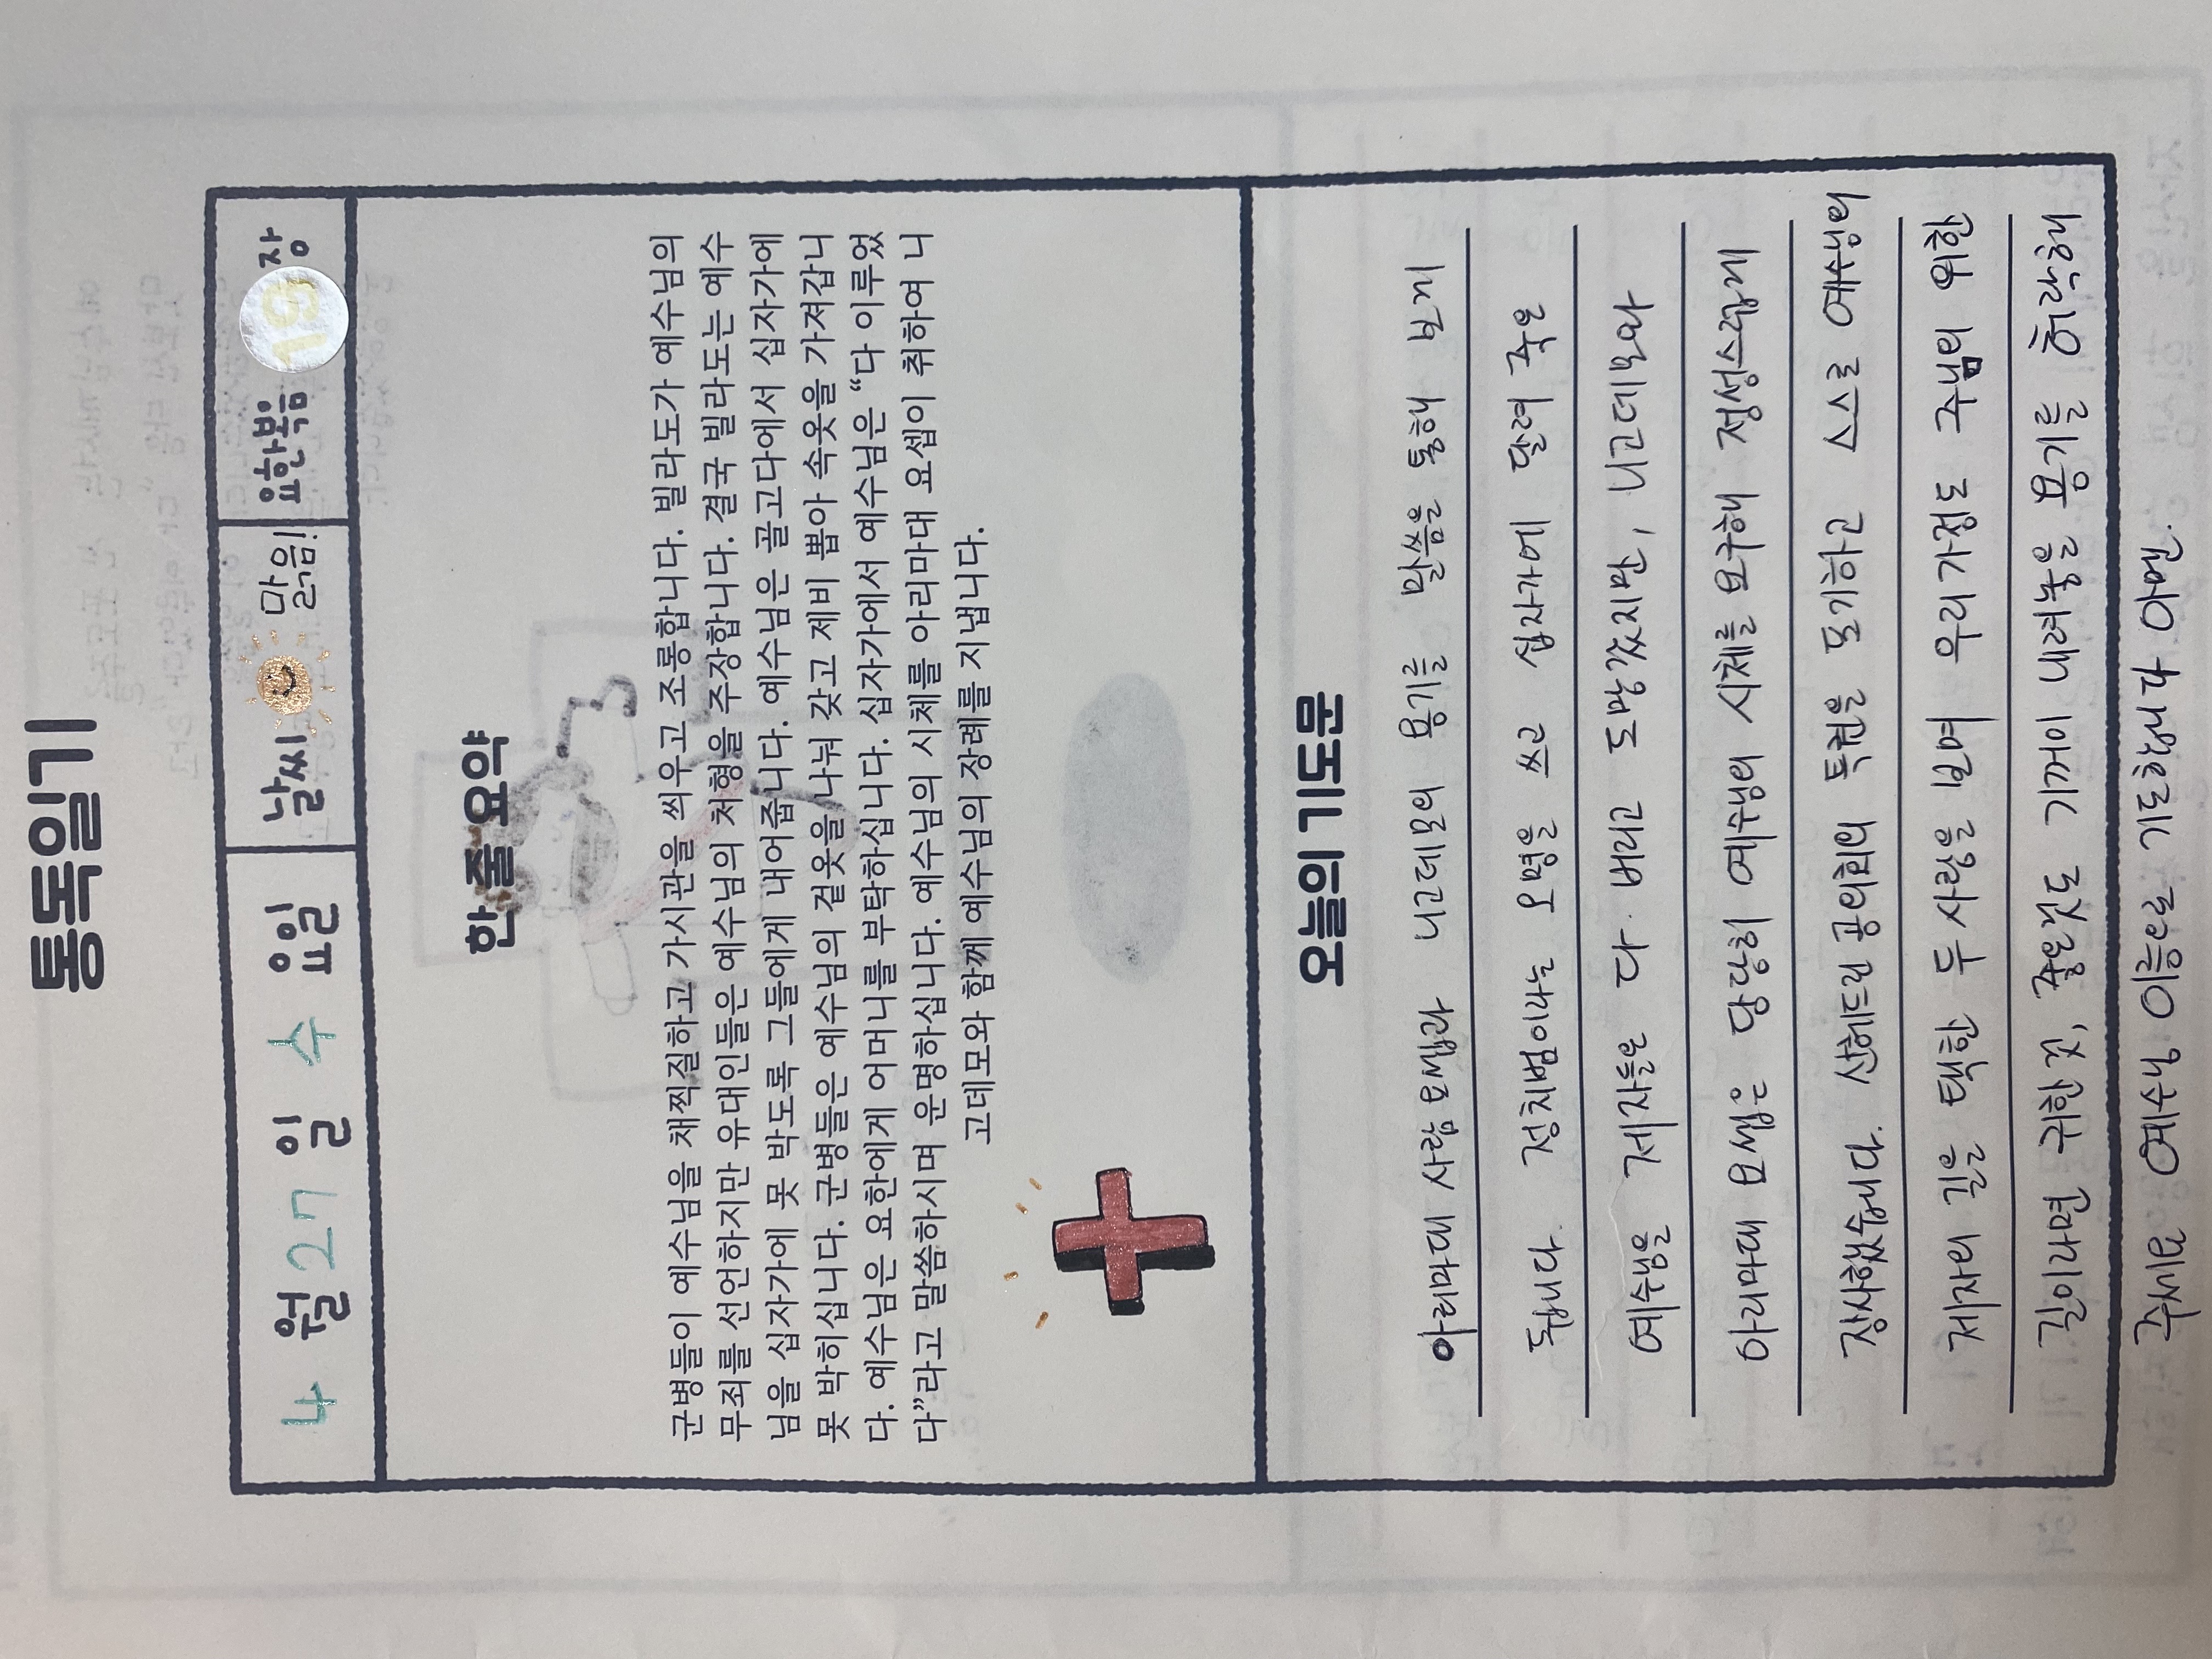 통독일기
4 월 27 일 수 요일 날씨 맑음! 요한복음 19 장
한 줄 요약
군병들이 예수님을 채찍질하고 가시관을 씌우고 조롱합니다. 빌라도가 예수님의
무죄를 선언하지만 유대인들은 예수님의 처형을 주장합니다. 결국 빌라도는 예수
님을 십자가에 못 박도록 그들에게 내어줍니다. 예수님은 골고다에서 십자가에
못 박히십니다. 군병들은 예수님의 겉옷을 나눠 갖고 제비 뽑아 속옷을 가져갑니
다. 예수님은 요한에게 어머니를 부탁하십니다. 십자가에서 예수님은 “다 이루었
다”라고 말씀하시며 운명하십니다. 예수님의 시체를 아리마대 요셉이 취하여 니
고데모와 함께 예수님의 장례를 지냅니다.
오늘의 기도문
아리마대 사람 요셉과 니고데모의 용기를 말씀을 통해 보게
됩니다. 정치범이라는 오명을 쓰고 십자가에 달려 죽은
예수님을 제자들은 다 버리고 도망갔지만, 니고데모와
아리마대 요셉은 당당히 예수님의 시체를 요구해 정성스럽게
장사했습니다. 산헤드린 공의회의 특권을 포기하고 스스로 예수님의
제자의 길을 택한 두 사람을 보며 우리 가정도 주님의 위한
길이라면 귀한 것, 좋은것도 기꺼이 내려놓을 용기를 허락해
주세요 예수님 이름으로 기도합니다 아멘.